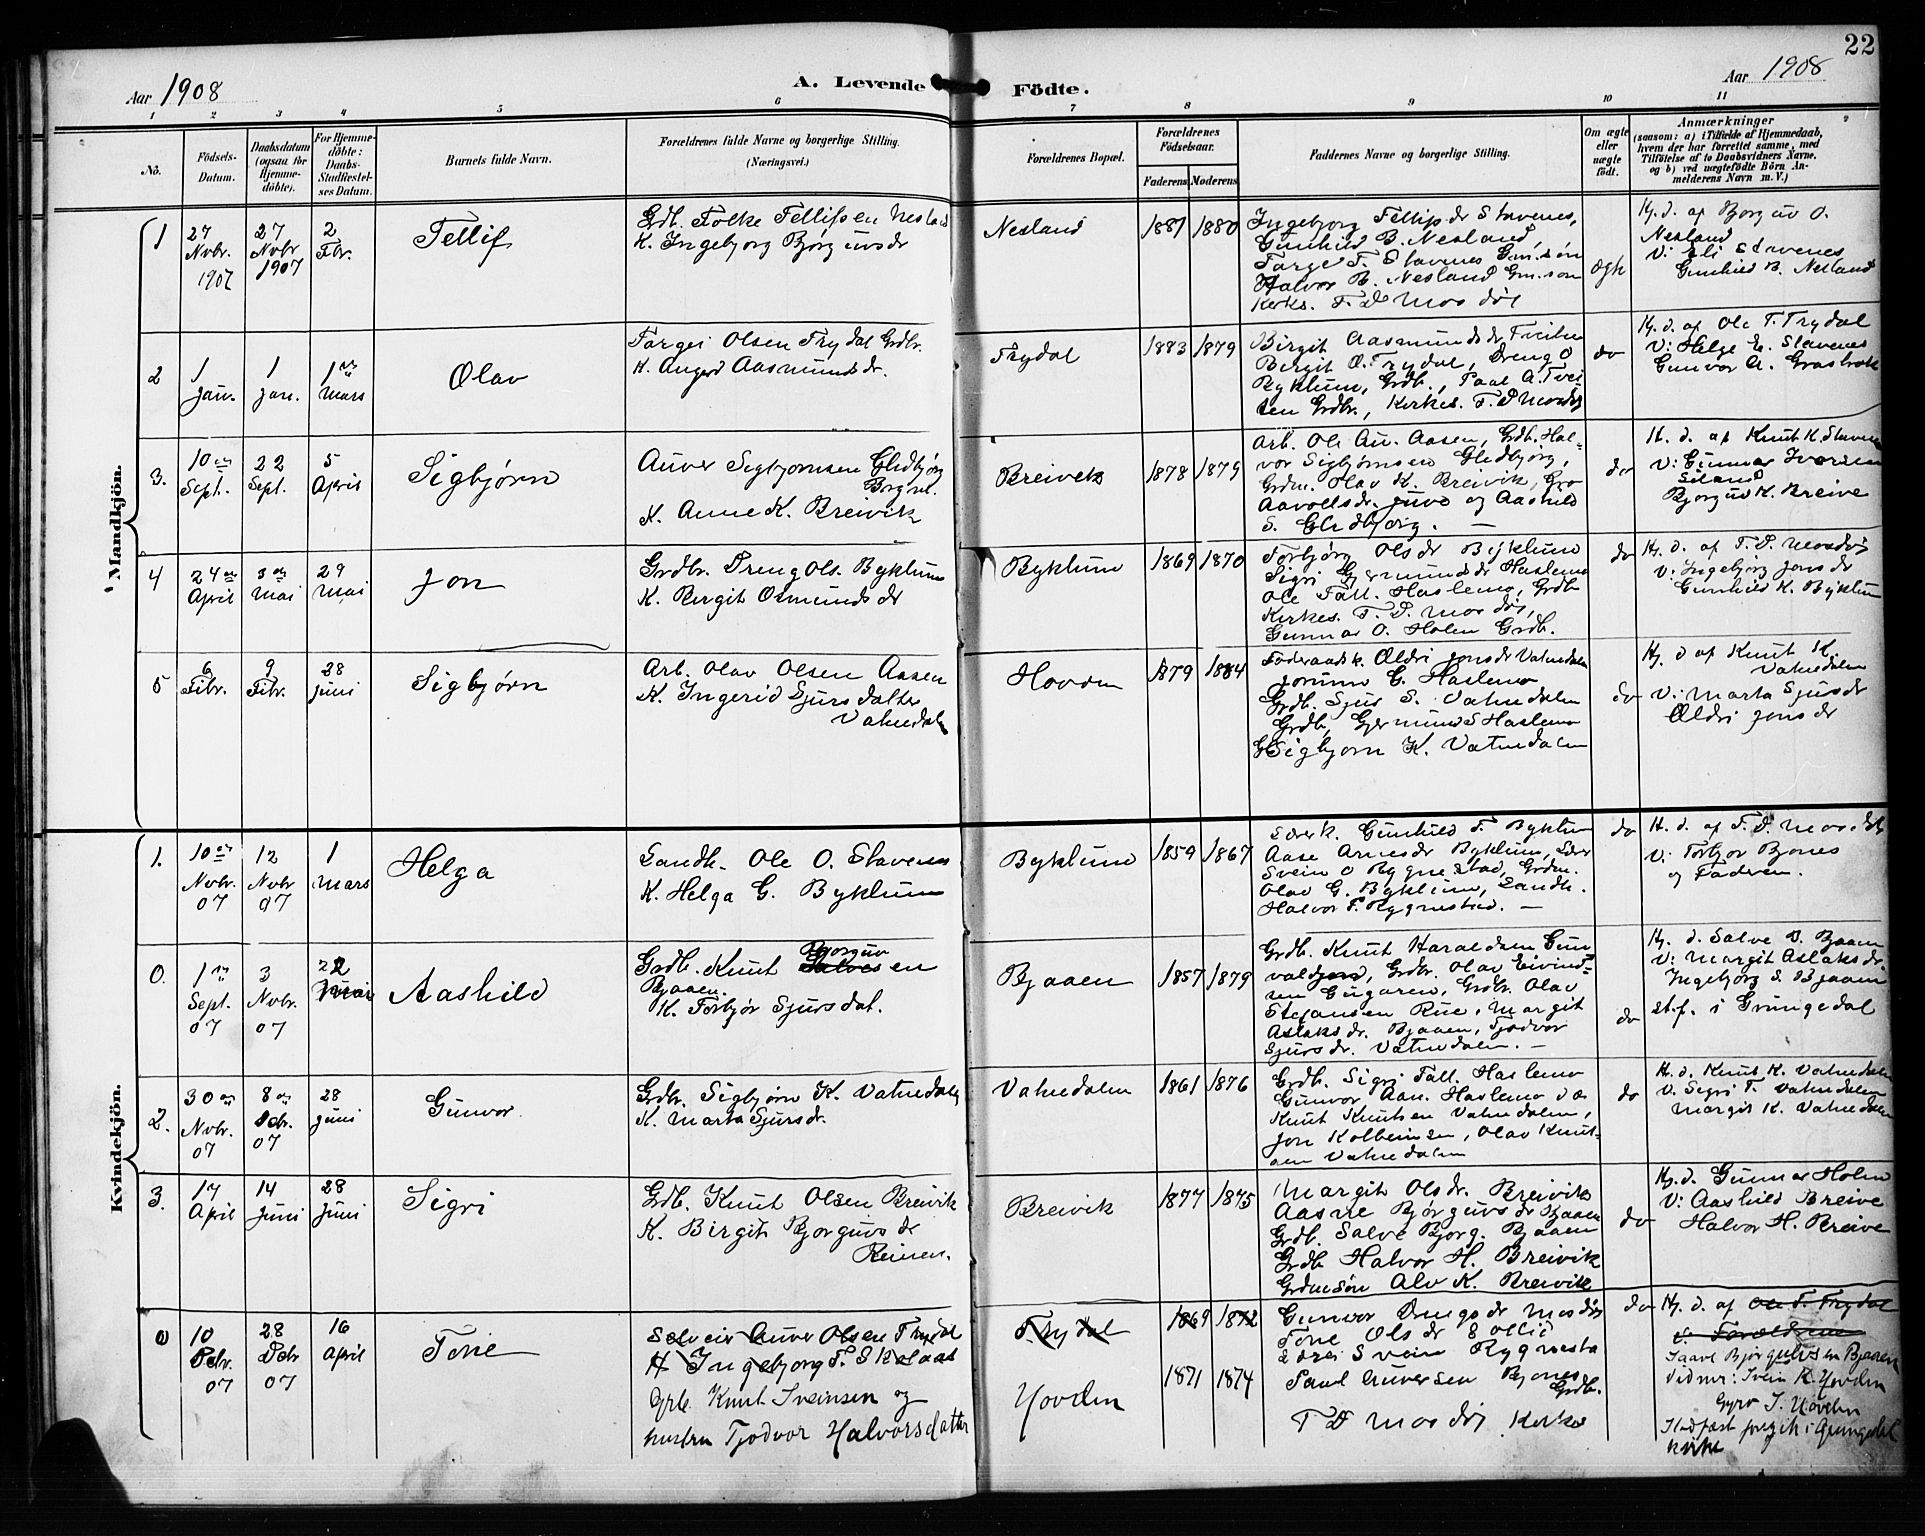 22
Aar 1908
A. Levende Födte.
Aar 1908
1 2 3 4 5 6 7 8 9 10 11
No.
Födsels-
Datum.
Daabsdatum
(ogsaa for
Hjemme-
döbte).
For Hjemme-
döbte:
Daabs-
Stadfæstel-
ses Datum.
Barnets fulde Navn.
Forældrenes fulde Navne og borgerlige Stilling.
(Næringsvei.)
Forældrenes Bopæl.
Forældrenes
Födselsaar.
Faderens
Moderens
Faddernes Navne og borgerlige Stilling.
Om ægte
eller
uægte
födt.
Anmærkninger
(saasom: a) i Tilfælde af Hjemmedaab,
hvem der har forrettet samme, med
Tilföielse af to Daabsvidners Navne,
og b) ved uægtefödte Börn An-
melderens Navn m. V.)
Mandkjön.
1
27
Novbr.
1907
27
Novbr
1907
2
Fbr.
Tellif
Grdb. Folke Tellifsen Nesland
K. Ingebjorg Bjørguvsdr
Nesland
1881
1880
Ingebjorg Tellifsdr Stavenes,
Gunhild B. Nesland,
Targe T. Stavenes Gm.søn
Halvor B. Nesland Gm.søn
Kerks. T. D Mosdøl
ægte
Hj. d. af Bjorguv O.
Nesland
V: Eli Stavenes
Gunhild B. Nesland
2
1
Jan.
1
Jan.
1ste
Mars
Olav
Targei Olsen Trydal Grdbr.
K. Angerd Aasmundsdr.
Trydal
1883
1879
Birgit Aasmundsdr Tveiten
Birgit O. Trydal, Dreng O
Byklum, Grdb., Paal A. Tvei-
ten Grdbr., Kirkes. T. D Mosdøl
do
Hj. d. af Ole T. Trydal
V: Helge E. Stavenes
Gunvor A.
3.
10de
Sept.
22
Sept.
5
April
Sigbjørn
Auver Sigbjørnsen Glidbjørg
K. Anne K. Breivik
Breivik
1878
1879
Arb. Ole Au. Aasen, Grdb. Hal-
vor Sigbjørnsen Glidbjørg,
Grdm. Olav K. Breivik, Gro
Aavollsdr. Juve og Aashild
S. Glidbjørg. —
do
H. d. af Knut K. Stavenes
V: Gunnar Iversen
Bjorguv K. Breive
4
24de
April
3de
Mai
29
Mai
Jon
Grdbr. Dreng Ols. Byklum
K. Birgit Osmundsdr
Byklum
1869
1870
Torbjørg Olsdr Byklum
Sigri Gjermundsdr Haslemo
Ole Tall. Haslemo, Grdb
Kirkes. T. D. Mosdøl,
Gunnar O. Holen Grdb.
do
Hj. d. af T. D. Mosdøl
V: Ingebjorg Jonsdr
Gunhild K. Byklum
5
6
Febr.
9
Febr.
28
Juni
Sigbjørn
Arb. Olav Olsen Aasen
K. Ingerid Sjursdatter
Vatnedalen
Hovden
1879
1884
Føderaadsk. Ældri Jonsdr Vatnedalen
Jorunn G. Haslemo
Grdb. Sjur S. Vatnedalen
Grdb, Gjermund S Haslemo
Sigbjorn K. Vatnedalen
do
Hj. d af Knut K.
Vatnedalen
V: Marta Sjursdr
Ældri Jonsdr
Kvindekjön.
1.
10de
Novbr.
07
12
Novbr
07
1
Mars
Helga
Landh. Ole O. Stavenes
K. Helga G. Byklum
Byklum
1859
1867
Gunhild T. Byklum
Aase Arnesdr Byklum,
Svein O Rygnestad, Grdm.
Olav G. Byklum, Landh.
Halvor T. Rygnestad. —
do
H. d. af T. D. Mosdøl
V: Torbjor Bjones
og Faderen.
0.
1ste
Sept.
07
3
Novbr.
07
22
Aashild
Grdb. Knut Bjorguv Salvesen
Bjaaen.
K. Torbjør Sjursdat.
Bjaaen
1857
1879
Grdb. Knut Haraldsen Gun
valdjord, Grdbr. Olav Eivind-
sen Gugaren, Grdbr. Olav
Stefansen Rue, Margit
Aslaksdr. Bjaaen, Tjodvor
Sjursdr. Vatnedalen. —
do
Hj. d. Salve B. Bjaaen
V: Margit Aslaksdr.
Ingebjorg S. Bjaaen
st.f. i Grungedal
2.
30te
Novbr.
07
8de
Decbr.
07
28
Juni
Gunvor
Grdbr. Sigbjørn K. Vatnedalen
K. Marta Sjursdr.
Vatnedalen
1861
1876
Grdb. Sigri Tall. Haslemo
Gunvor Aan. Haslemo
Knut Knutsen Vatnedalen,
Jon Kolbeinsen, Olav Knut-
sen Vatnedalen
do
H. d. Knut K. Vatnedalen
V. Sigri T. Vatnedalen
Margit K. Vatnedalen
3.
17
April
14
Juni
28
Juni
Sigri
Grdb. Knut Olsen Breivik
K. Birgit Bjorguvsdr
Breivik
1877
1875
Margit Olsdr. Breivik
Aasne Bjørguvsdr Bjaaen
Grdb. Salve Bjorg. Bjaaen
Grdb Halvor H. Breivik
Grdmsøn Alv K. Breivik
do
Hj. d. Gunnar Holen
V: Aashild Breive
Halvor H. Breive
0
10
Dcbr.
07
28
Dcbr
07
16
April
Tone
Selveier Auver Olsen Trydal
H Ingebjorg T. Skalaas
Grb. Knut Sveinsen og
hustru Tjodvor Halvorsdatter
Trydal
Hovden
1869
1872
1871
1874
Gunvor Drengsdr Mosdøl
Tone Olsdr
Svein Rygnesta
Paul Auversen Bjones
Grdb.
T D Mosdøl Kirkes
do
Hj. d. af Ole T. Trydal
V. Forældrene
Saave Bjørgulvsen Bjaaen
Vidner: Svein K. Hovden
Gyro S. Hovden
Stadfæst foregik i Grungedal
kirke